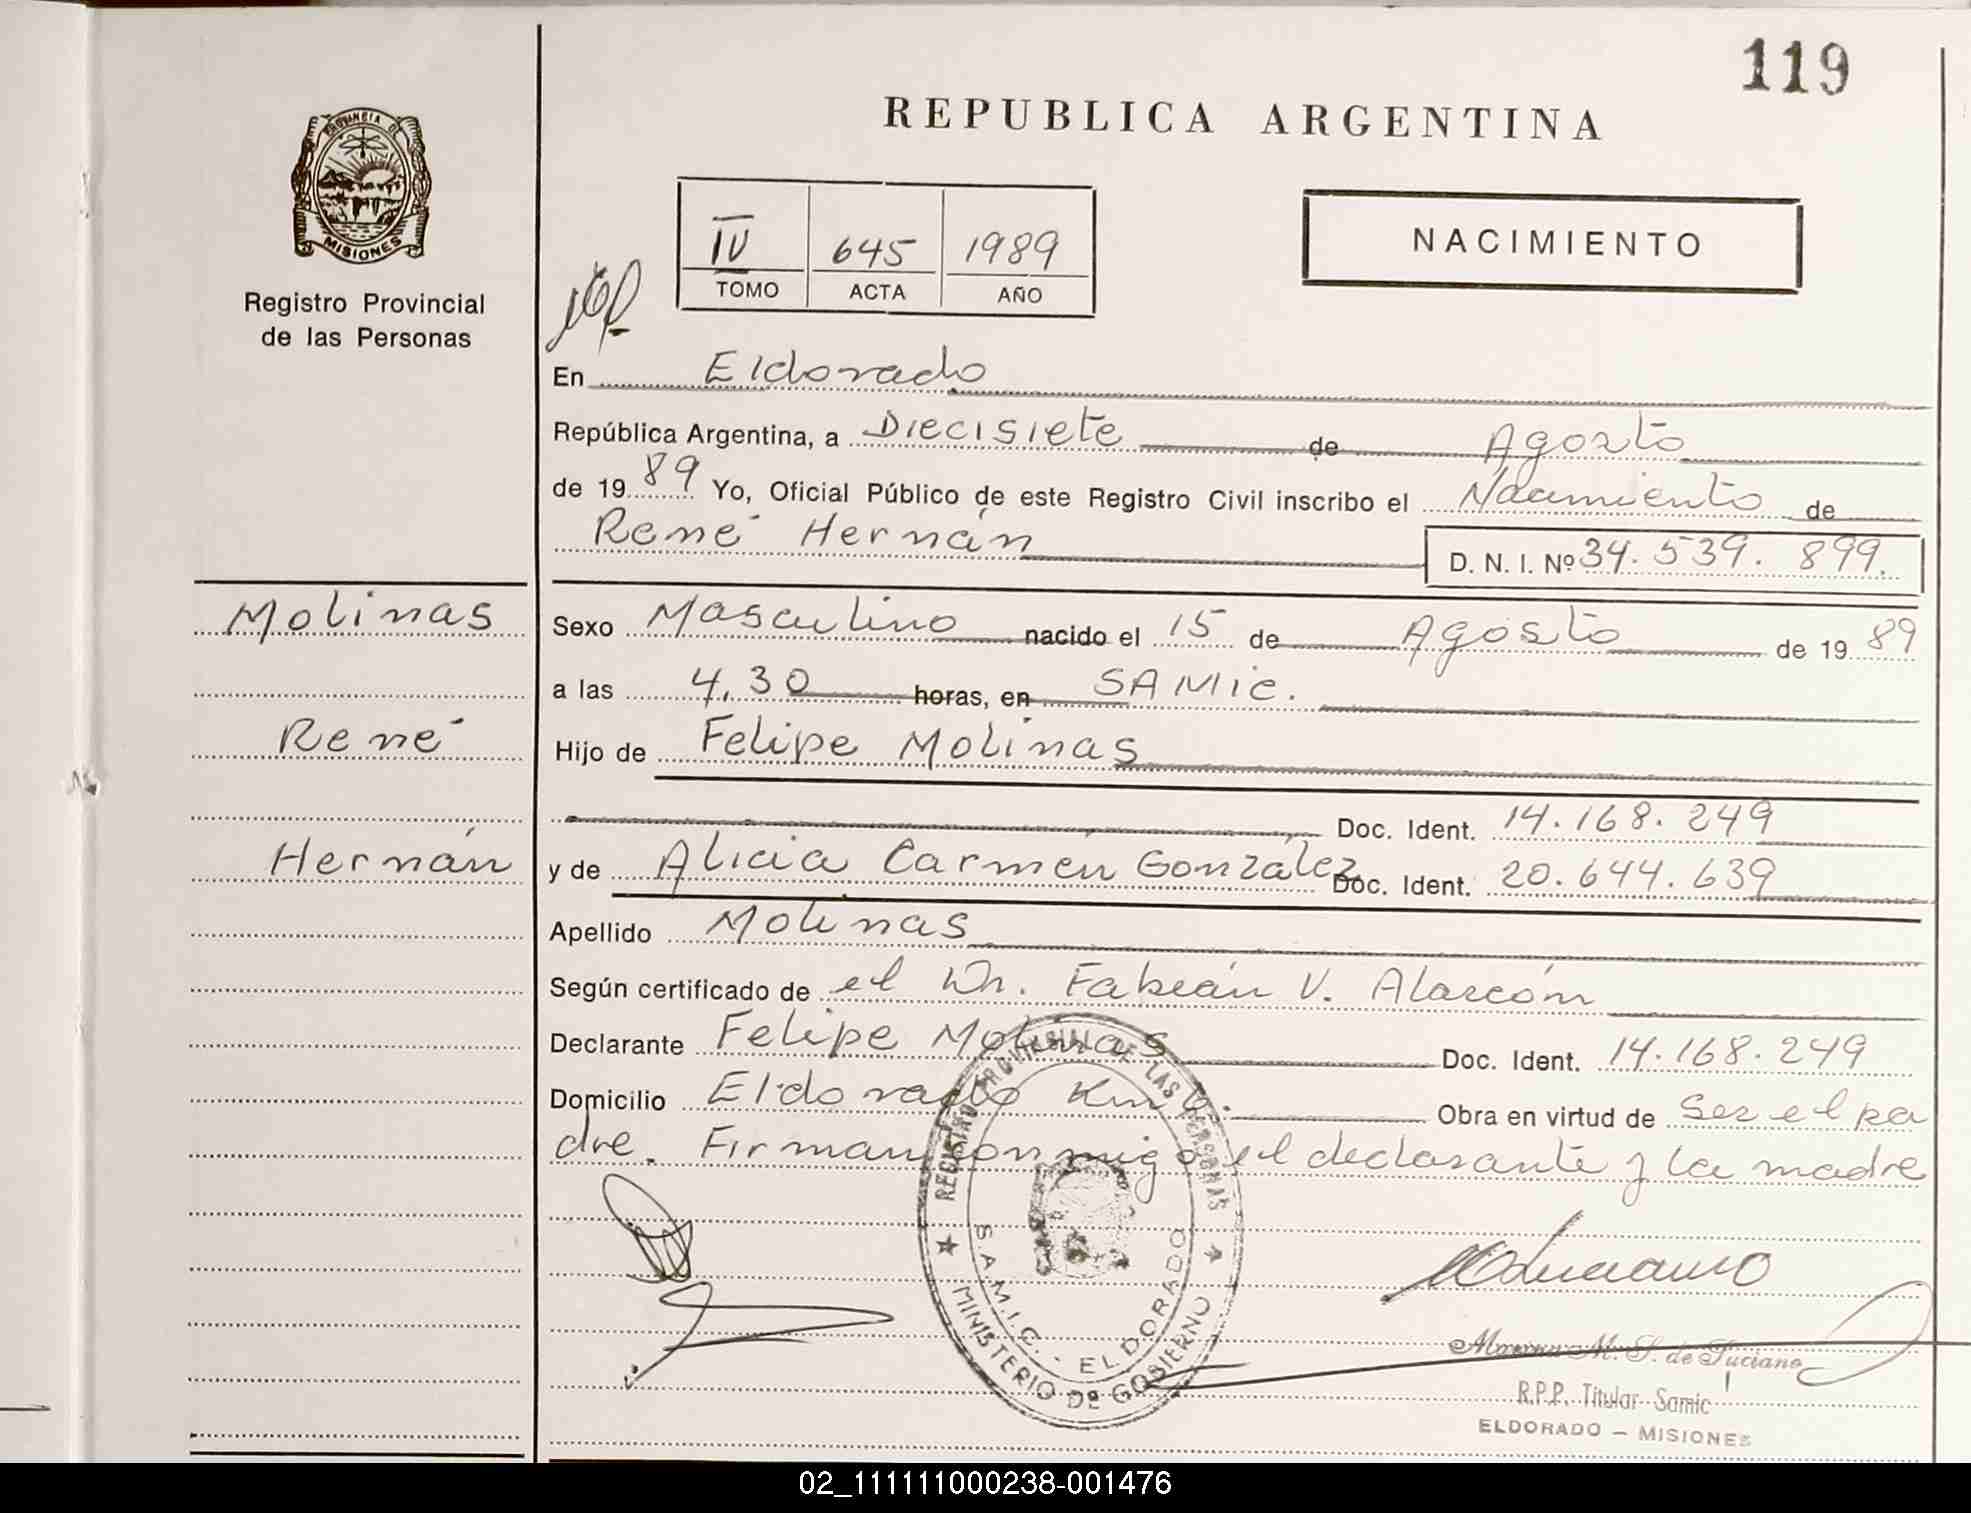 119
REPUBLICA ARGENTINA
PROVINCIA DE
MISIONES
Registro Provincial
de las Personas
IV 645 1989
TOMO ACTA AÑO
NACIMIENTO
En Eldorado
República Argentina, a Diecisiete de Agosto
de 1989 Yo, Oficial Público de este Registro Civil inscribo el Nacimiento de
René Hernán D. N. I. Nº 34.539.899.
Molinas
René
Hernán
Sexo Masculino nacido el 15 de Agosto de 1989
a las 4,30 horas, en SAMic.
Hijo de Felipe Molinas
Doc. Ident. 14.168.249
y de Alicia Carmen González Doc. Ident. 20.644.639
Apellido Molinas
Según certificado de el Dr. Fabián V. Alarcón
Declarante Felipe Molinas Doc. Ident. 14.168.249
Domicilio Eldorado Km Obra en virtud de Ser el pa
dre. Firman conmigo el declarante y la madre
REGISTRO PROVINCIAL DE LAS PERSONAS
S.A.M.I.C. - ELDORADO
MINISTERIO DE GOBIERNO
M. S. de Luciano
R.P.P. Titular Samic
ELDORADO – MISIONES
02_111111000238-001476